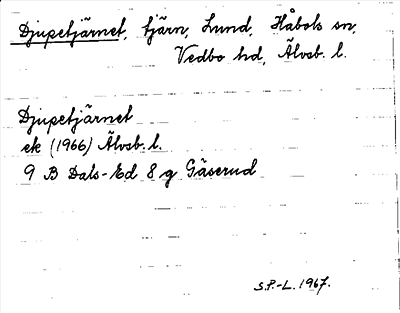 Djupetjärnet, tjärn, Lund, Håbols sn,
Vedbo hd, Älvsb. l.
Djupetjärnet
ek (1966) Älvsb. l.
9 B Dals-Ed 8 g Gäserud
S.P.-L. 1967.